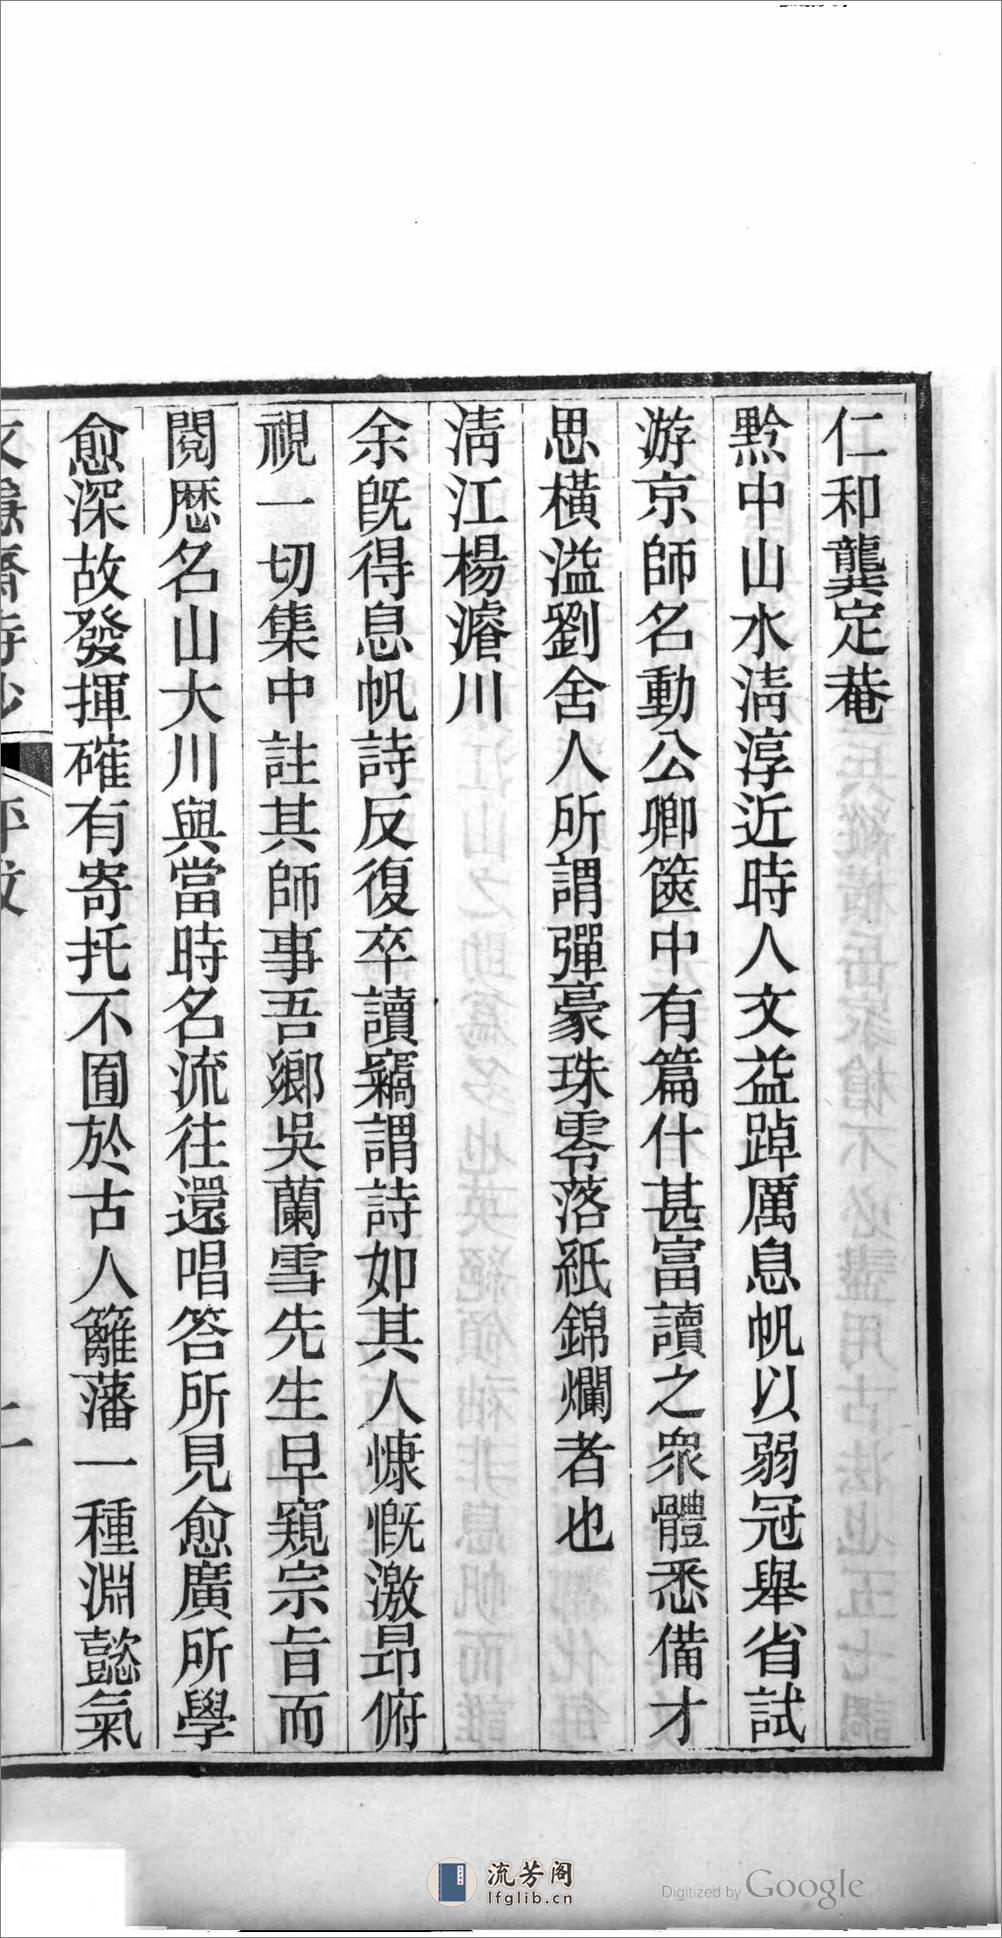 仁和龔定菴
黔中山水淸淳近時人文益踔厲息帆以弱冠舉省試
游京師名動公卿篋中有篇什甚富讀之衆體悉備才
思橫溢劉舍人所謂彈豪珠零落紙錦爛者也
淸江楊濬川
余旣得息帆詩反復卒讀竊謂詩如其人慷慨激昂俯
視一切集中註其師事吾鄉吳蘭雪先生早窺宗旨而
閱歷名山大川與當時名流往還唱答所見愈廣所學
愈深故發揮確有寄托不囿於古人籬藩一種淵懿氣
流芳阁
lfglib.cn
Digitized by Google